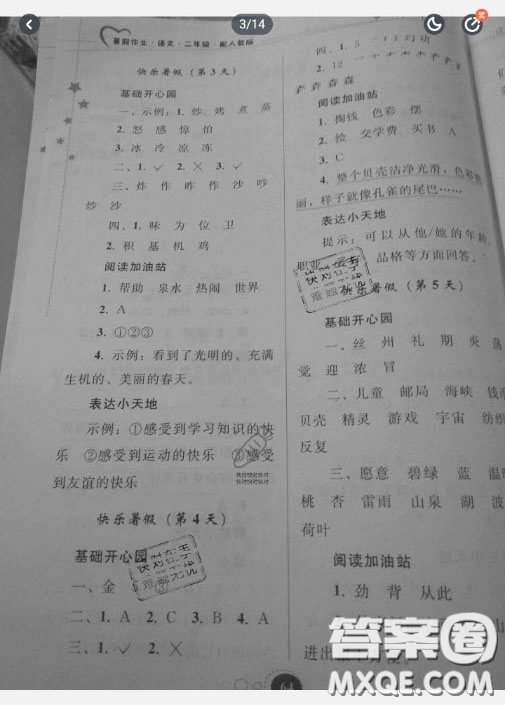 3/14
暑假作业·语文·二年级·配人教版
快乐暑假（第3天）
基础开心园
一、示例：1. 炒 烤 煮 蒸
2. 怒 感 惊 怕
3. 冰 冷 凉 冻
二、1.✓ 2.× 3.✓
三、炸 作 昨 作 沙 吵
炒 沙
四、1. 味 为 位 卫
2. 积 基 机 鸡
阅读加油站
1. 帮助 泉水 热闹 世界
2. A
3. ①②③
4. 示例：看到了光明的、充满
生机的、美丽的春天。
表达小天地
示例：①感受到学习知识的快
乐 ②感受到运动的快乐 ③感受
到友谊的快乐
快乐暑假（第4天）
基础开心园
一、金
二、1. A 2. C 3. B 4. A
三、1.✓ 2.×
四、1. 5
2. 12
森 森 森
阅读加油站
1. 掏钱 色彩 摆
2. 捡 交学费 买书 A
3. C
4. 整个贝壳洁净光滑，色彩
丽，样子就像孔雀的尾巴……
表达小天地
提示：可以从他/她的年龄、
职业、 品格等方面回答。
快乐暑假（第5天）
基础开心园
一、丝 州 礼 期 炎 荡
觉 迎 浓 冒
二、儿童 邮局 海峡 钱
贝壳 精灵 游戏 宇宙 纺织
反复
三、愿意 碧绿 蓝 温
桃 杏 雷雨 山泉 湖 波
荷叶
阅读加油站
1. 劲 背 从此
山
进出
64
答案圈
MXQE.COM